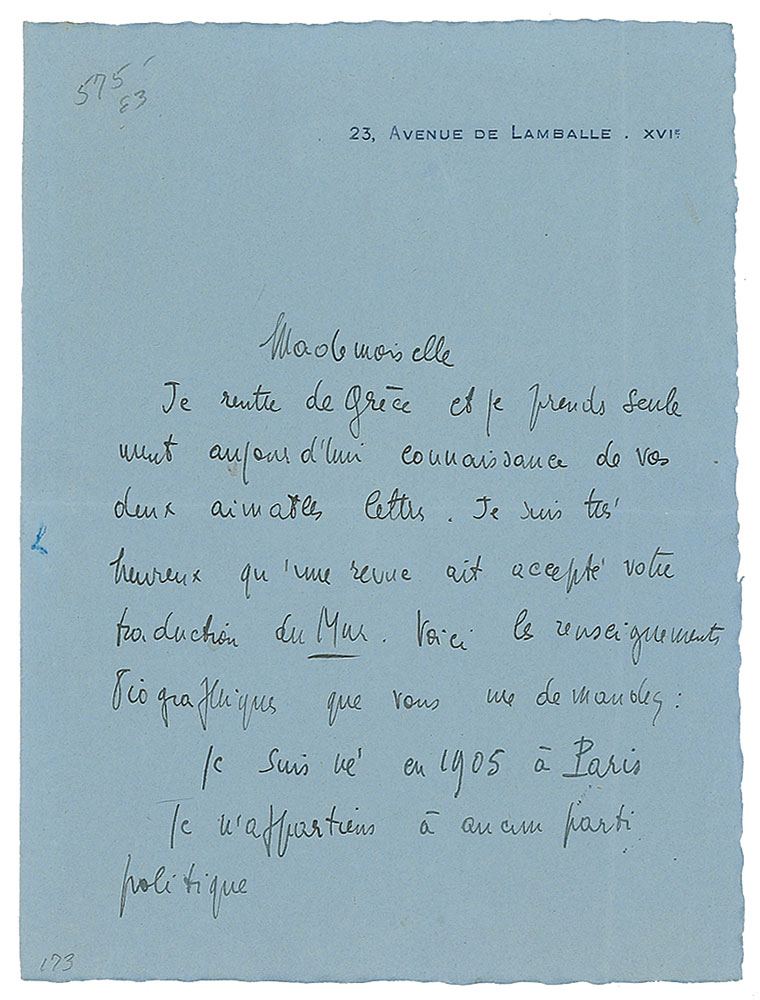 575
E3
23, AVENUE DE LAMBALLE . XVIE
Mademoiselle
Je rentre de Grèce et je prends seule
ment aujourd'hui connaissance de vos
deux aimables lettres. Je suis très
heureux qu'une revue ait accepté votre
traduction du Mur. Voici les renseignements
biographiques que vous me demandez :
Je suis né en 1905 à Paris
Je n'appartiens à aucun parti
politique
173